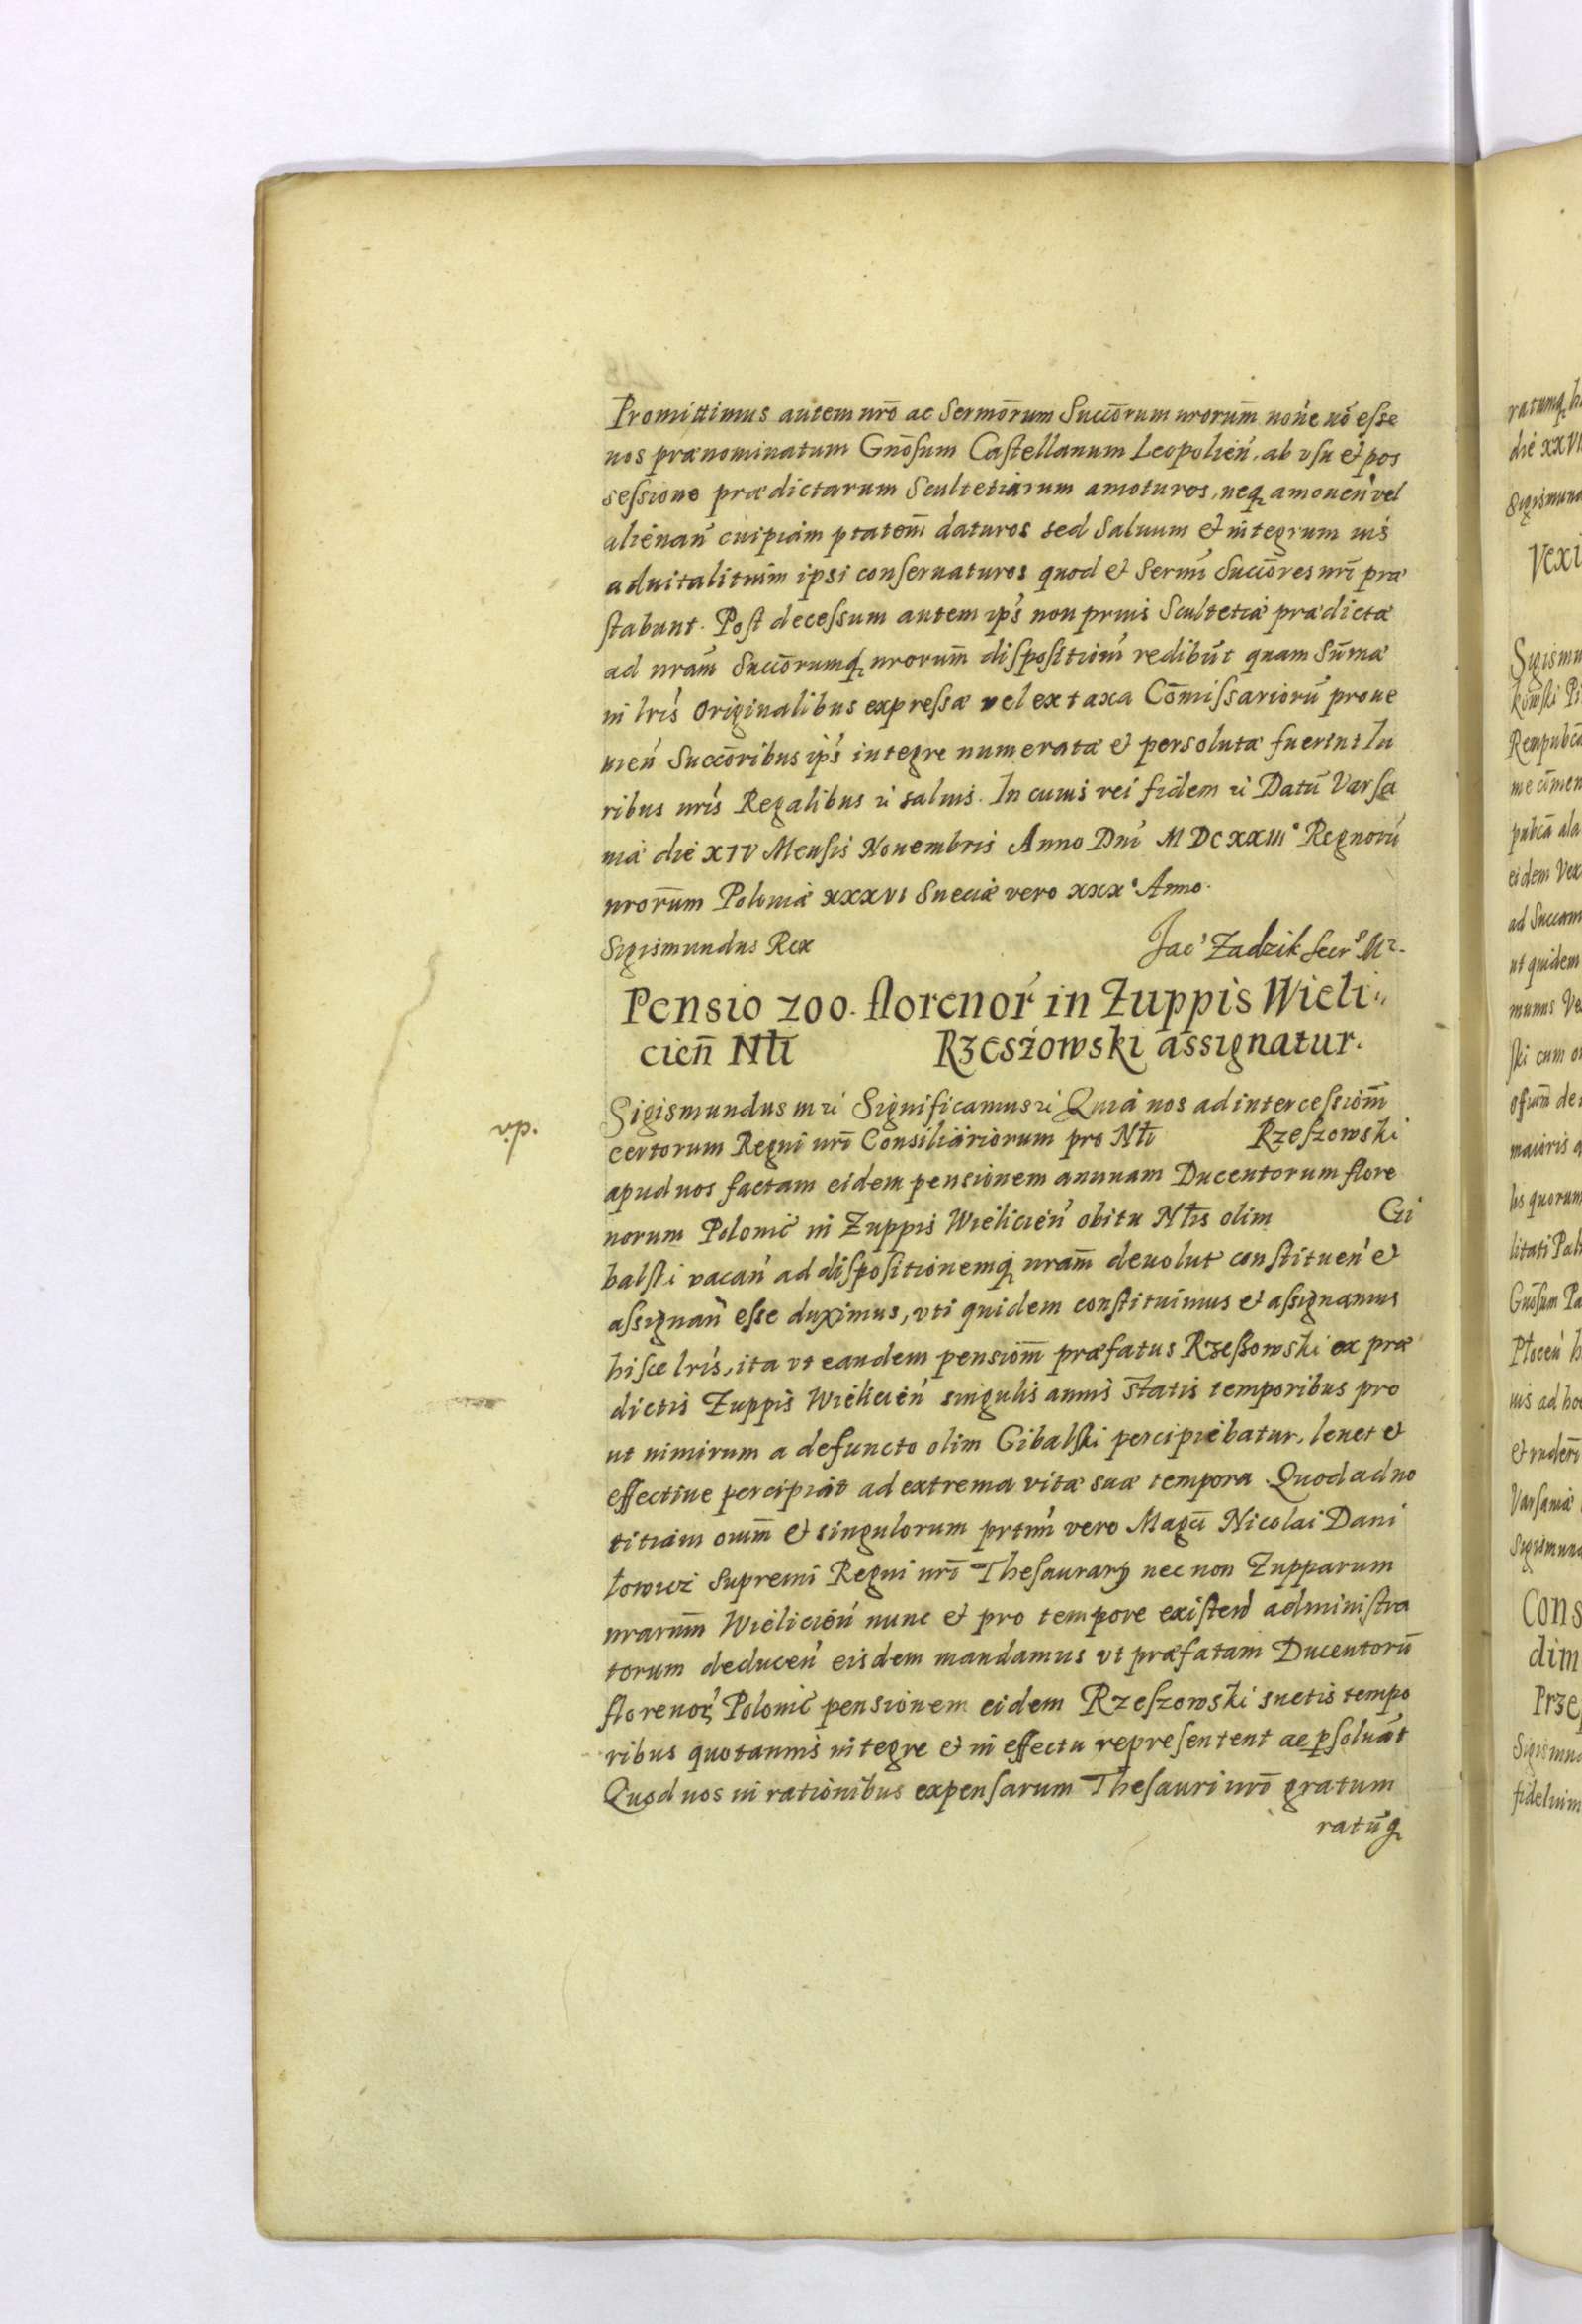 Promittimus autem nrō ac Sermōrum Succōrum nrorum̄ noīe nō eſse
nos prænominatum Gnōsum Caſtellanum Leopolień, ab vſu et pos
seſsione prædictarum Scultetiarum amoturos, neq̨ amoueń vel
alienań cuipiam ptatem̄ daturos sed Saluum et integrum ius
aduitalituim ipsi conſeruaturos quod et Sermī Succōres nrī præ
ſtabunt. Poſt deceſsum autem ip̄s non prius Scultetiæ prædictæ
ad nram̄ Succōrumq̨ nrorum̄ diſpoſitiom̄ redibūt quam Sūmæ
in lrīs Originalibus expreſsæ vel ex taxa Cōmiſsariorū proue
nień Succōribus ip̄s integre numeratæ et persolutæ fuerint Iu
ribus nrīs Regalibus ꝛ̃ saluis. In cuius rei fidem ꝛ̃ Datū Varſa
uiæ die XIV Mensis Nouembris Anno Dnī M DC XXIII° Regnorū
nrorūm Poloniæ XXXVI Sueciæ vero XXX° Anno.
Sigismundus Rex Jac' Zadzik Secr S Mꝛ.
Pensio 200. florenoŕ in Zuppis Wieli
cień Nłi Rzeszowski assignatur.
Sigismundus III ꝛ̃ Significamus ꝛ̃ Quia nos ad interceſsiom̄
certorum Regni nrī Consiliariorum pro Nłi Rzeſzowski
apud nos factam eidem pensionem annuam Ducentorum flore
norum Polonić in Zuppis Wielicień obitu Nłis olim Gi
balſki vacań ad diſpoſitionemq̨ nram̄ deuolut conſtitueń et
aſsignań eſse duximus, vti quidem conſtituimus et aſsignamus
hiſce lrīs, ita vt eandem pensiom̄ præfatus Rzeſzowski ex præ
dictis Zuppis Wielicień singulis annis s̄tatis temporibus pro
ut nimirum a defuncto olim Gibalſki percipiebatur, leuet et
effectiue percipiat ad extrema vitæ suæ tempora. Quod ad no
titiam oium̄ et singulorum prtim̄ vero Magcī Nicolai Dani
łowicz Supremi Regni nrī Theſaurarÿ nec non Zupparum
nrarum̄ Wielicień nunc et pro tempore exiſteń adminiſtra
torum deduceń eisdem mandamus vt præfatam Ducentorū
florenoŕ Polonić pensionem eidem Rzeſzowski suetis tempo
ribus quotannis integre et in effectu repreſentent ac pſoluāt
Quod nos in rationibus expenſarum Theſauri nrī gratum
ratūq̨